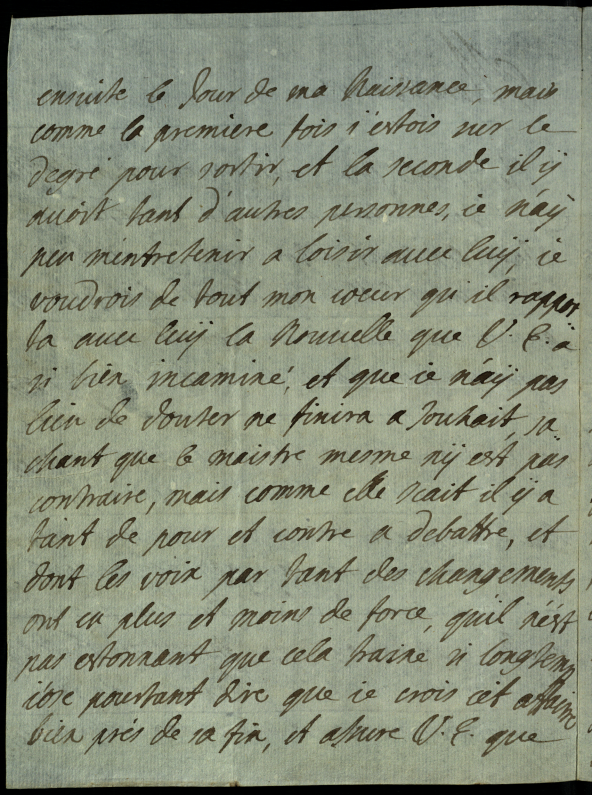 ensuite le Jour de ma Naissance, mais
comme la premiere fois i'estois sur le
degré pour sortir, et la seconde il ÿ
auoit tant d'autres personnes, ie n'aÿ
peu m'entretenir a loisir auec luÿ, ie
voudrois de tout mon coeur qu'il rappor
ta auec luÿ la Nouuelle que V. E. a
si bien incaminé, et que ie n'aÿ pas
lieu de douter ne finira a Souhait, sa
chant que le maistre mesme n'ÿ est pas
contraire, mais comme elle scait il ÿ a
tant de pour et contre a debattre, et
dont les voix par tant des changements
ont eu plus et moins de force, qu'il n'est
pas estonnant que cela traine si longtemps
i'ose pourtant dire que ie crois cèt affaire
bien prés de sa fin, et assure V. E. que